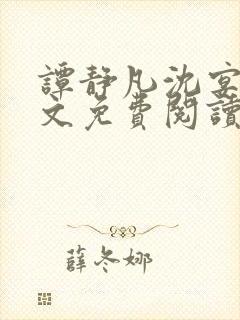 譚靜凡沈宴
文免費閱讀
薛冬娜